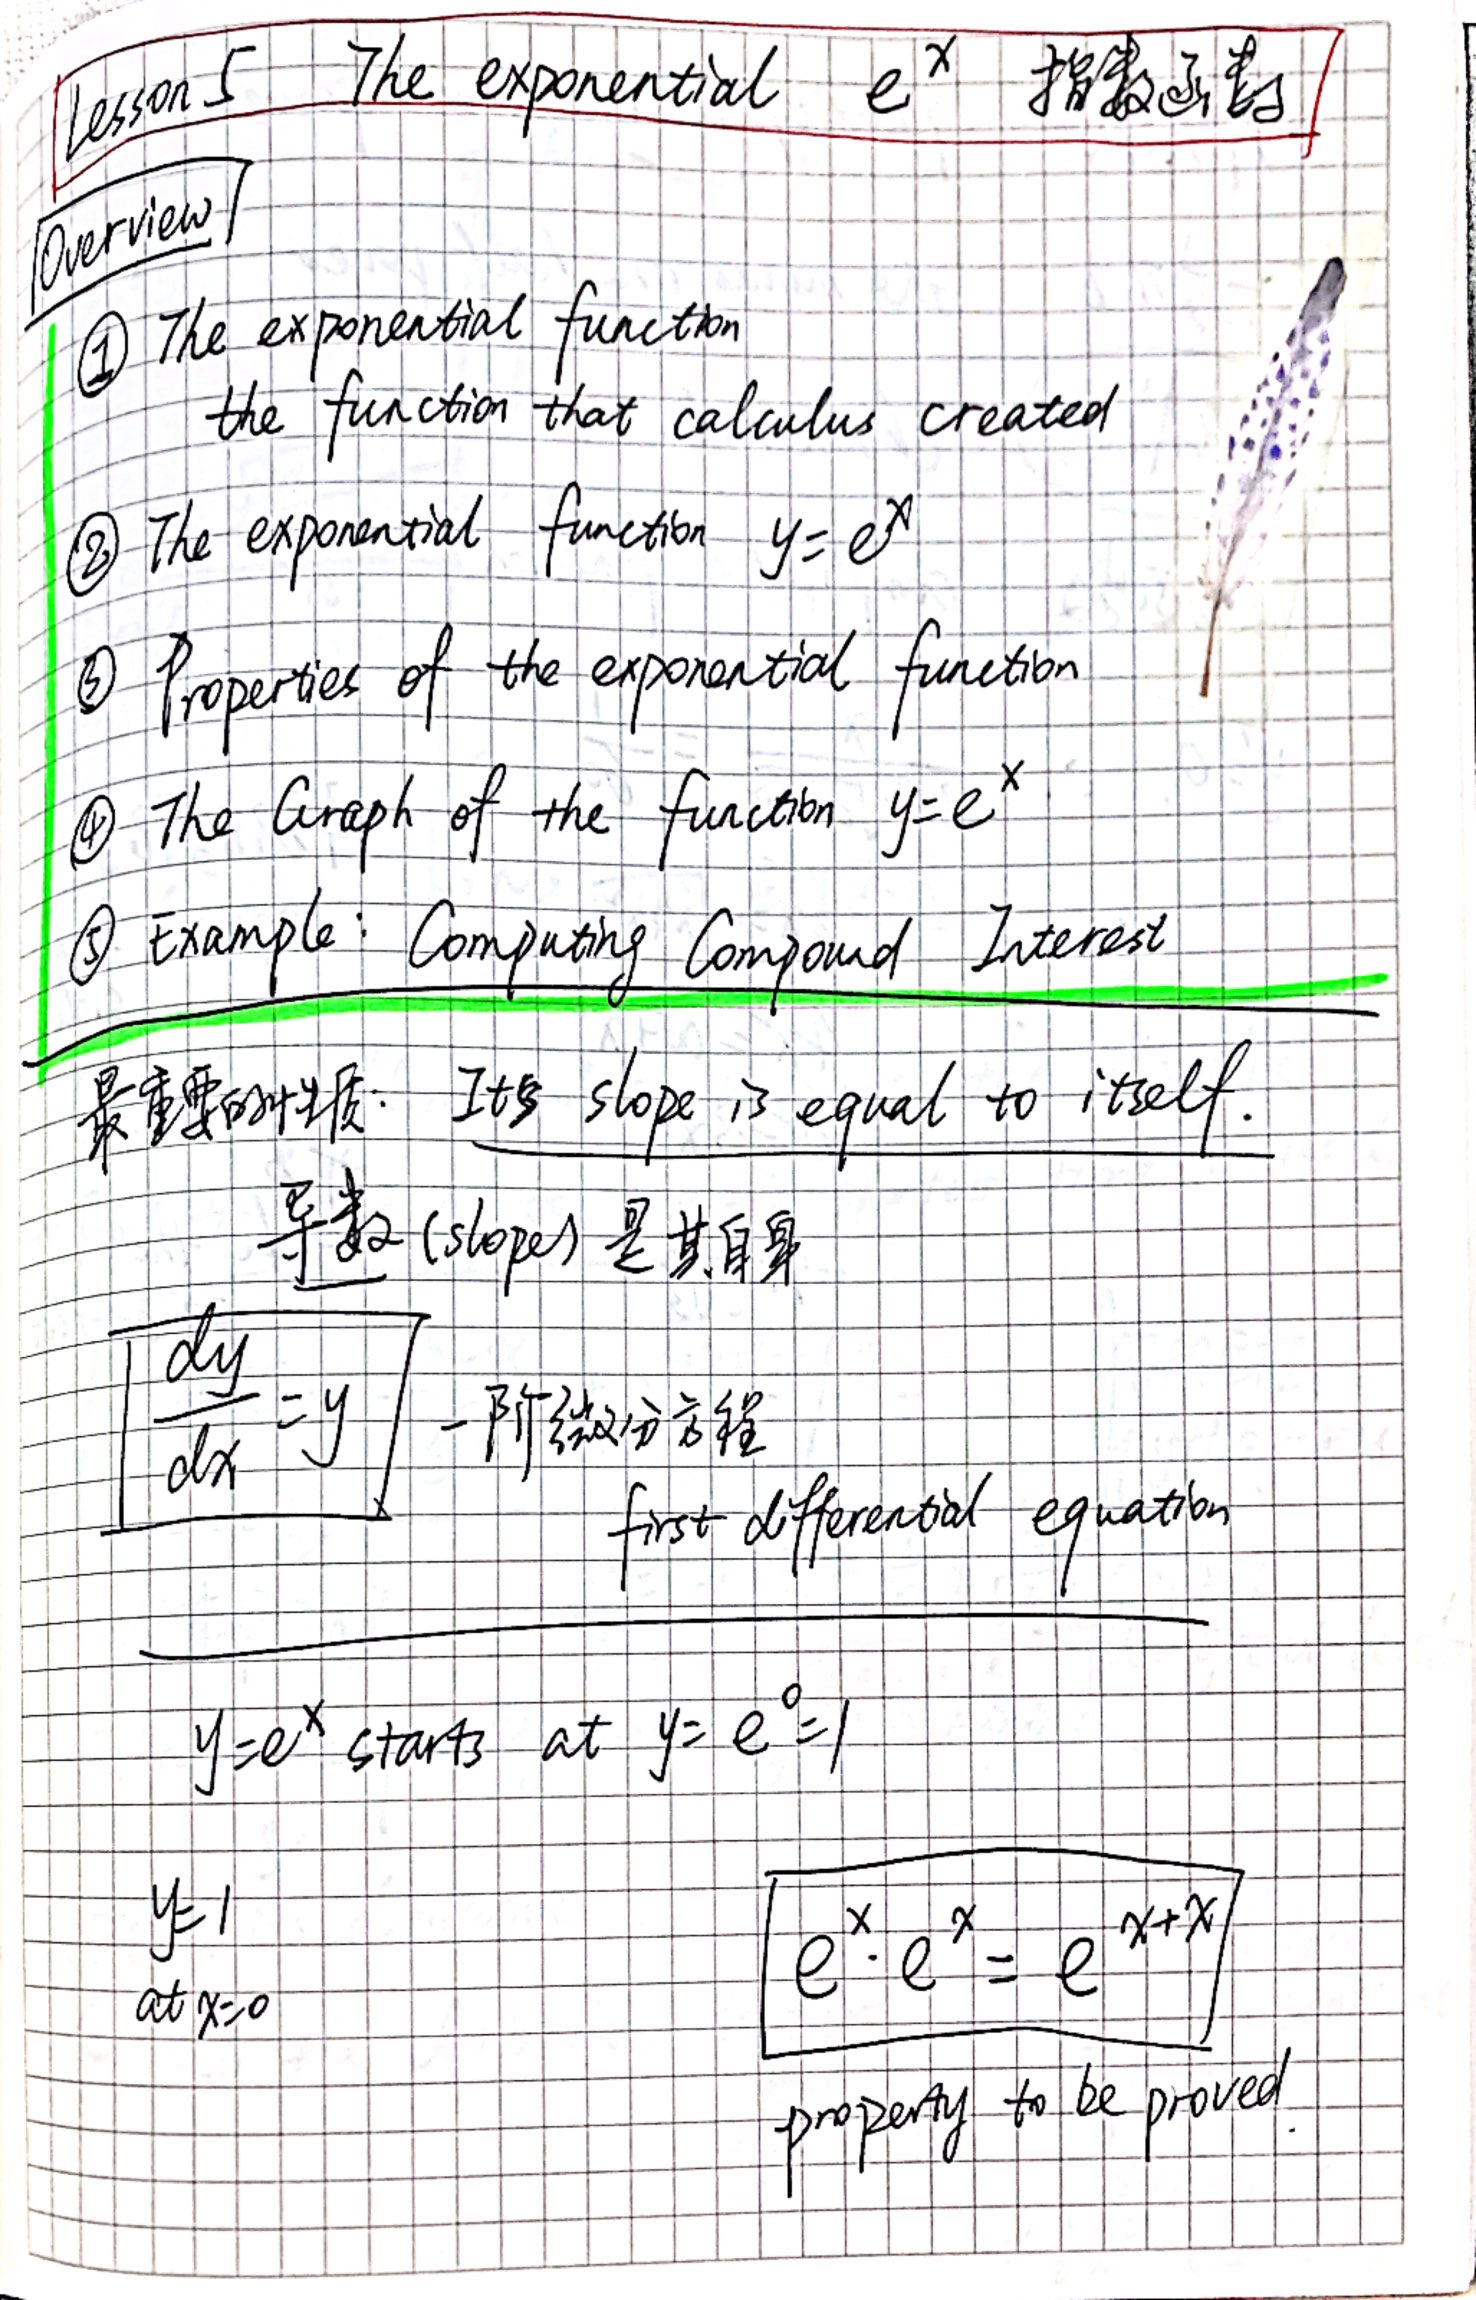 Lesson 5 The exponential e^x 指数函数
Overview
① The exponential function
the function that calculus created
② The exponential function y=e^x
③ Properties of the exponential function
④ The Graph of the function y=e^x
⑤ Example: Computing Compound Interest
最重要的性质: Its slope is equal to itself.
导数 (slope) 是其自身
dy/dx = y 一阶微分方程
first differential equation
y=e^x starts at y=e^0=1
y=1
at x=0
e^x · e^x = e^{x+x}
property to be proved.